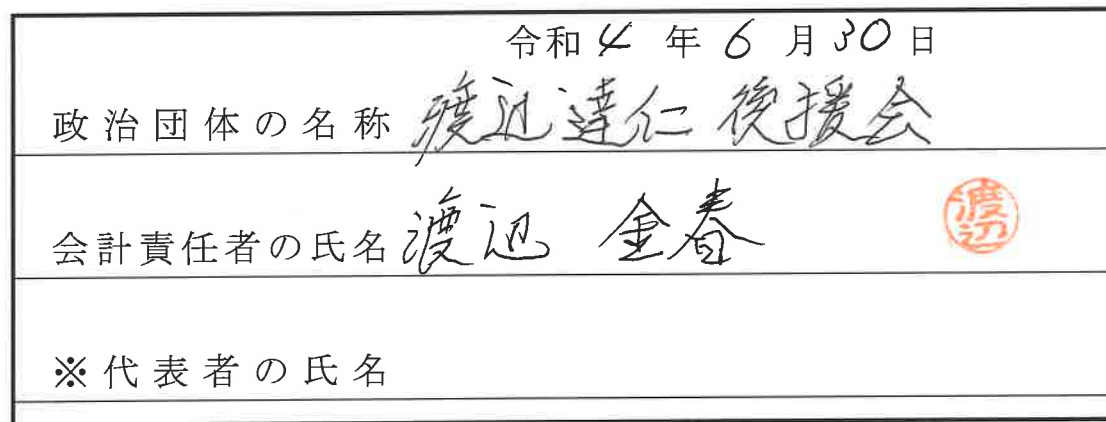 令和4年6月30日
政治団体の名称 渡辺達仁後援会
会計責任者の氏名 渡辺 金春
渡辺
※代表者の氏名